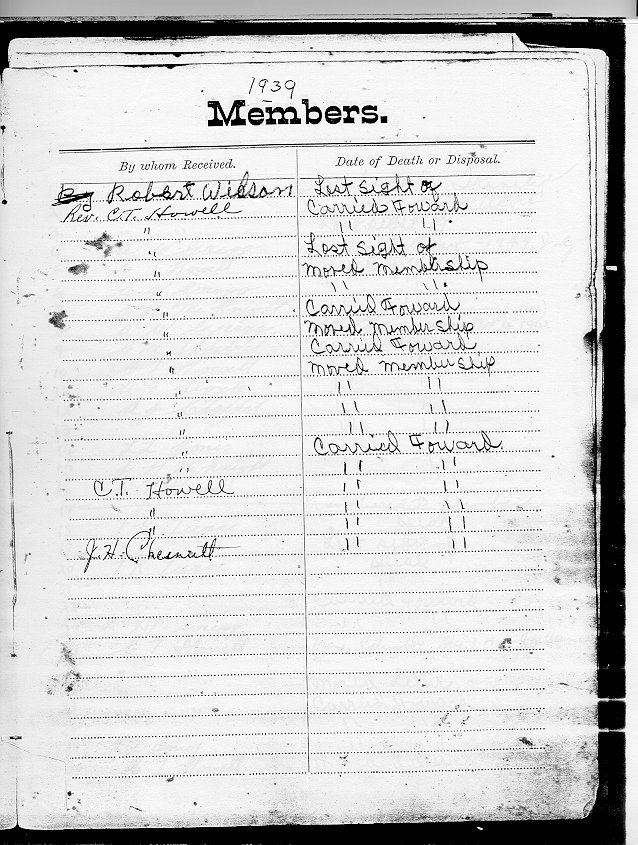 1939
Members.
By whom Received. Date of Death or Disposal.
By Robert Wilson Lost Sight of
Rev. C.T. Howell Carried Foward
" " "
" Lost Sight of
" Moved Membership
" " "
" Carried Foward
" Moved Membership
" Carried Foward
" Moved Membership
" " "
" " "
" " "
" Carried Foward
" " "
C.T. Howell " "
" " "
" " "
J.H. Chesnutt " "